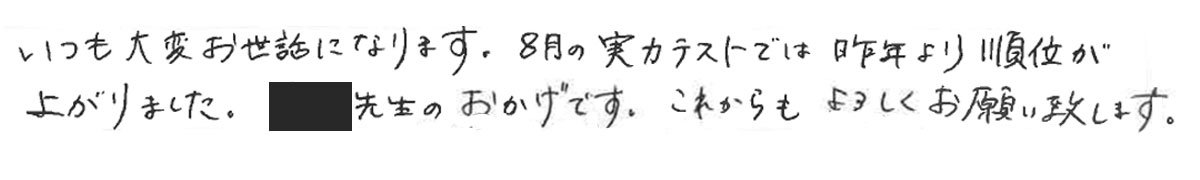 いつも大変お世話になります。8月の実力テストでは昨年より順位が
上がりました。先生のおかげです。これからもよろしくお願い致します。